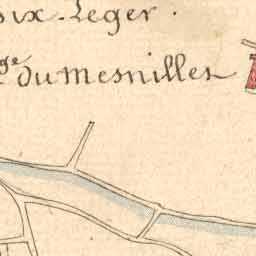 oix-Leger.
ge du Mesnilles